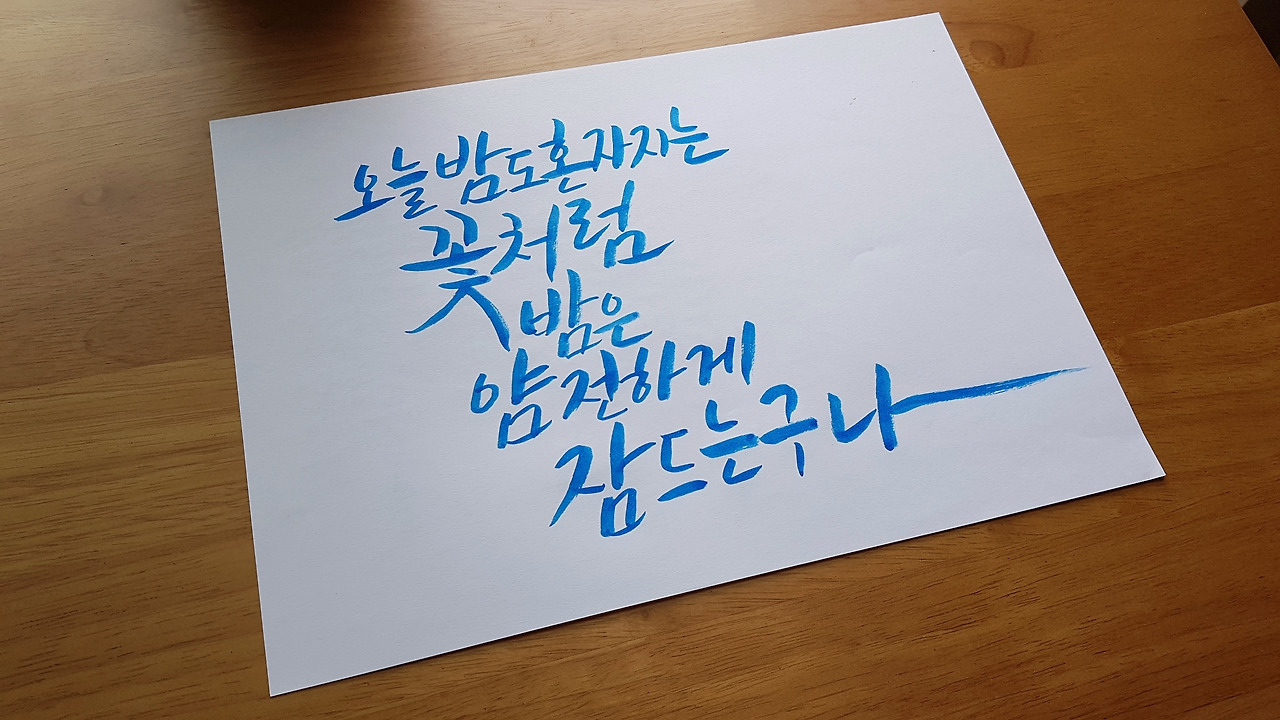 오늘 밤도 혼자 자는
꽃처럼
밤은
얌전하게
잠드는구나